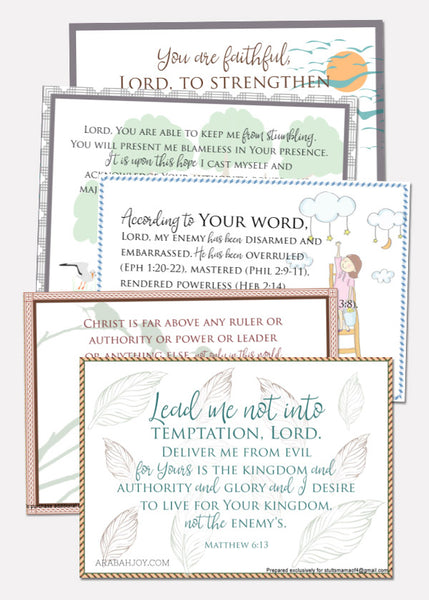 You are faithful,
Lord, to strengthen
Lord, You are able to keep me from stumbling.
You will present me blameless in Your presence.
It is upon this hope I cast myself and
According to Your word,
Lord, my enemy has been disarmed and
embarrassed. He has been overruled
(Eph 1:20-22), mastered (Phil 2:9-11),
rendered powerless (Heb 2:14)
3:8).
Christ is far above any ruler or
authority or power or leader
or anything else, not only in this world
Lead me not into
temptation, Lord.
Deliver me from evil
for Yours is the kingdom and
authority and glory and I desire
to live for Your kingdom,
not the enemy's.
Matthew 6:13
ARABAHJOY.COM
Prepared exclusively for stuttsmamaof4@gmail.com